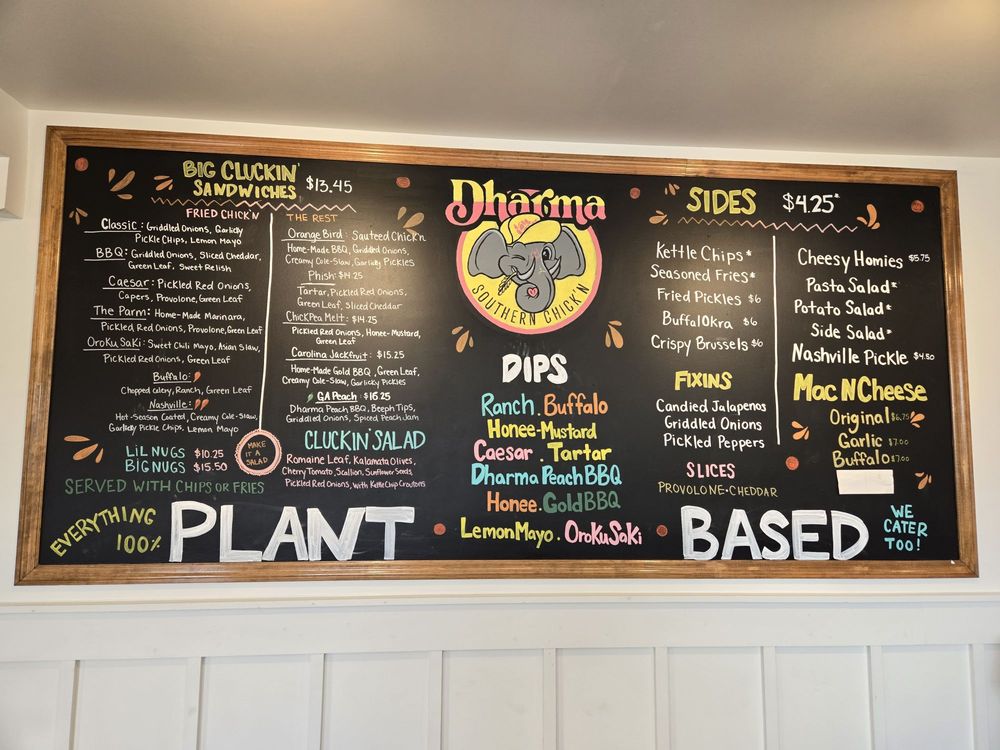 BIG CLUCKIN'
SANDWICHES $13.45
FRIED CHICK'N
Classic: Griddled Onions, Garlicky
Pickle Chips, Lemon Mayo
BBQ: Griddled Onions, Sliced Cheddar,
Green Leaf, Sweet Relish
Caesar: Pickled Red Onions,
Capers, Provolone, Green Leaf
The Parm: Home-Made Marinara,
Pickled Red Onions, Provolone, Green Leaf
Oroku Saki: Sweet Chili Mayo, Asian Slaw,
Pickled Red Onions, Green Leaf
Buffalo:
Chopped Celery, Ranch, Green Leaf
Nashville:
Hot-Season Coated, Creamy Cole-Slaw,
Garlicky Pickle Chips, Lemon Mayo
LiL NUGS $10.25
BIG NUGS $15.50
SERVED WITH CHIPS OR FRIES
THE REST
Orange Bird: Sauteed Chick'n
Home-Made BBQ, Griddled Onions,
Creamy Cole-Slaw, Garlicky Pickles
Phish: $14.25
Tartar, Pickled Red Onions,
Green Leaf, Sliced Cheddar
ChickPea Melt: $14.25
Pickled Red Onions, Honee-Mustard,
Green Leaf
Carolina Jackfruit: $15.25
Home-Made Gold BBQ, Green Leaf,
Creamy Cole-Slaw, Garlicky Pickles
GA Peach: $16.25
Dharma Peach BBQ, Beeph Tips,
Griddled Onions, Spiced Peach Jam
MAKE
IT A
SALAD
CLUCKIN SALAD
Romaine Leaf, Kalamata Olives,
Cherry Tomato, Scallion, Sunflower Seeds,
Pickled Red Onions, With Kettle Chip Croutons
Dharma
SOUTHERN CHICK'N
DIPS
Ranch. Buffalo
Honee-Mustard
Caesar. Tartar
Dharma Peach BBQ
Honee. Gold BBQ
Lemon Mayo. Oroku Saki
SIDES $4.25*
Kettle Chips*
Seasoned Fries*
Fried Pickles $6
Buffal Okra $6
Crispy Brussels $6
FIXINS
Candied Jalapenos
Griddled Onions
Pickled Peppers
SLICES
PROVOLONE · CHEDDAR
Cheesy Homies $5.75
Pasta Salad*
Potato Salad*
Side Salad*
Nashville Pickle $4.50
Mac N Cheese
Original $6.75
Garlic $7.00
Buffalo $7.00
EVERYTHING
100%
PLANT BASED
WE
CATER
TOO!